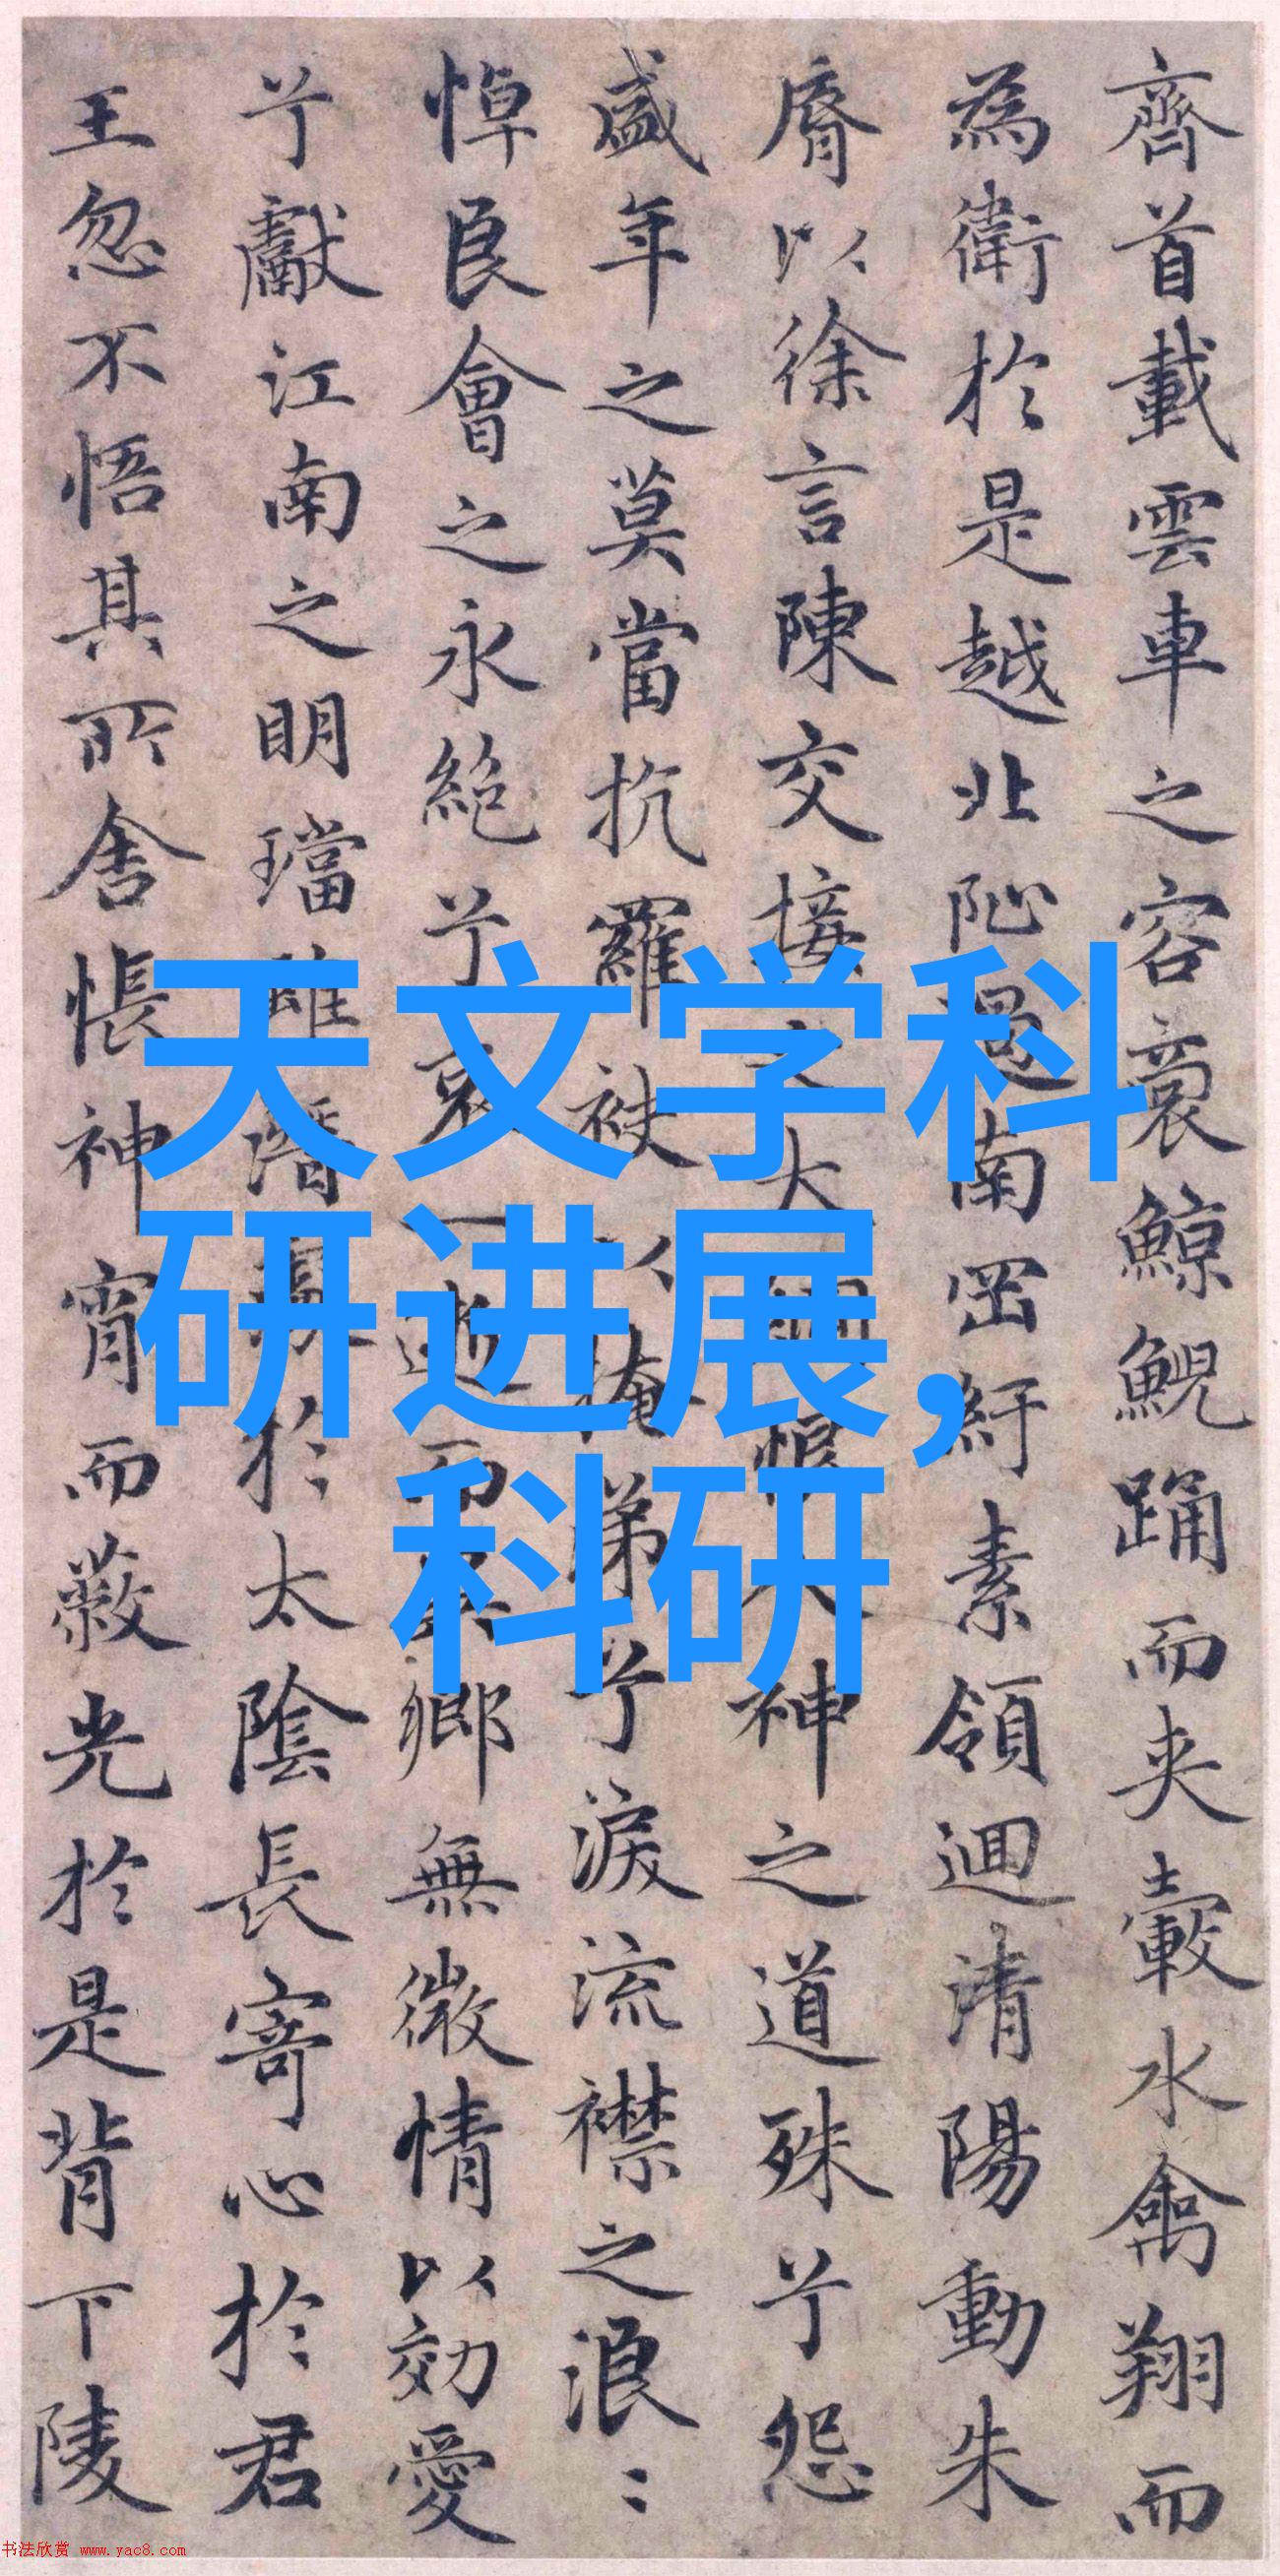 齊首載雲車之容裔鯨鯢踊而夾轂水禽翔而
為衛於是越北沚過南岡紆素領迴清陽動朱
脣以徐言陳交接之大綱恨人神之道殊兮怨
盛年之莫當抗羅袂以掩涕兮淚流襟之浪〻
悼良會之永絕兮哀一逝而異鄉無微情以効愛
兮獻江南之明璫雖潛處於太陰長寄心於君
王忽不悟其所舍悵神宵而蔽光於是背下陵
天文学科
研进展,
科研
书法欣赏 www.yac8.com